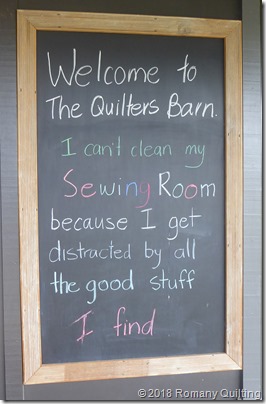 Welcome to
The Quilters Barn.
I can't clean my
Sewing Room
because I get
distracted by all
the good stuff
I find
©2018 Romany Quilting